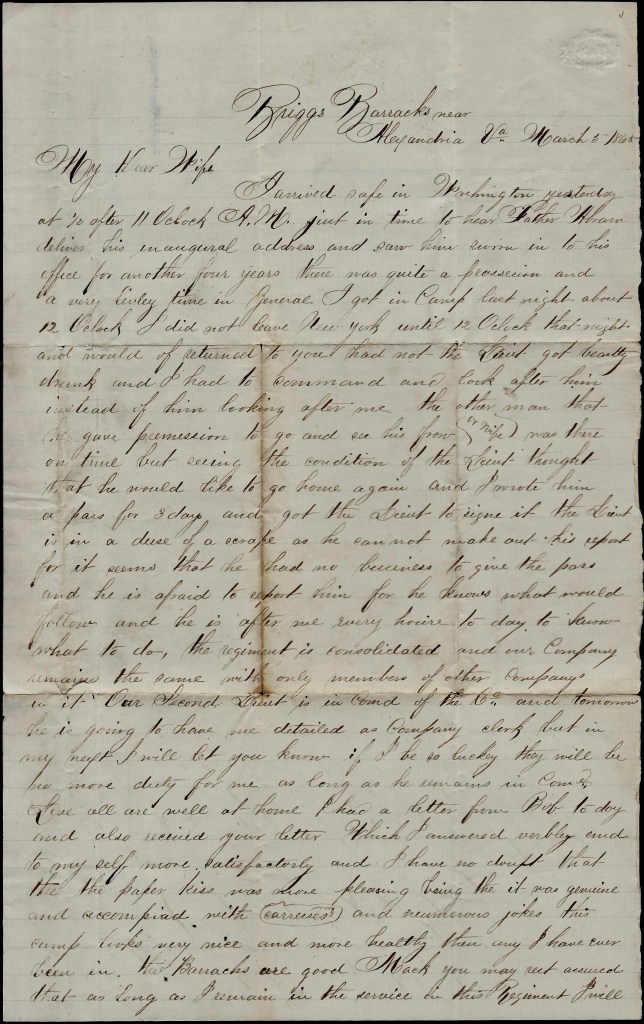 Briggs Barracks near
Alexandria Va March 5 1865
My Dear Wife
I arrived safe in Washington yesterday
at ½ after 11 Oclock A.M. just in time to hear Father Abram
deliver his inaugural address and saw him sworn in to his
office for another four years there was quite a prossecion and
a very livley time in General I got in Camp last night about
12 Oclock I did not leave New York until 12 Oclock that night
and would of returned to you had not the Lieut got beastly
drunk and I had to command and look after him
instead of him looking after me the other man that
he gave premission to go and see his frow (or wife) was there
on time but seeing the condition of the Lieut thought
that he would like to go home again and I wrote him
a pass for 3 days and got the Lieut to signe it the Lieut
is in a duse of a scrape as he can not make out his report
for it seems that he had no buisness to give the pass
and he is afraid to report him for he knows what would
follow and he is after me every houre to day to know
what to do, the regiment is consolidated and our Company
remains the same with only members of other companys
in it Our Second Lieut is in comd of the Co. and tomorrow
he is going to have me detailed as company clerk but in
my next I will let you know if I be so luckey they will be
no more duty for me as long as he remains in Comd.
Lise all are well at home I had a letter from Bob to day
and also recived your letter Which I answered verbley and
to my self more satisfactorly and I have no doupt that
the the paper kiss was more pleasing being the it was genuine
and accompiad with (carreises) and neumorous jokes this
camp looks very nice and more healthy then any I have ever
been in. the Barracks are good Mack you may rest assured
that as long as I remain in the service in this Regiment I will